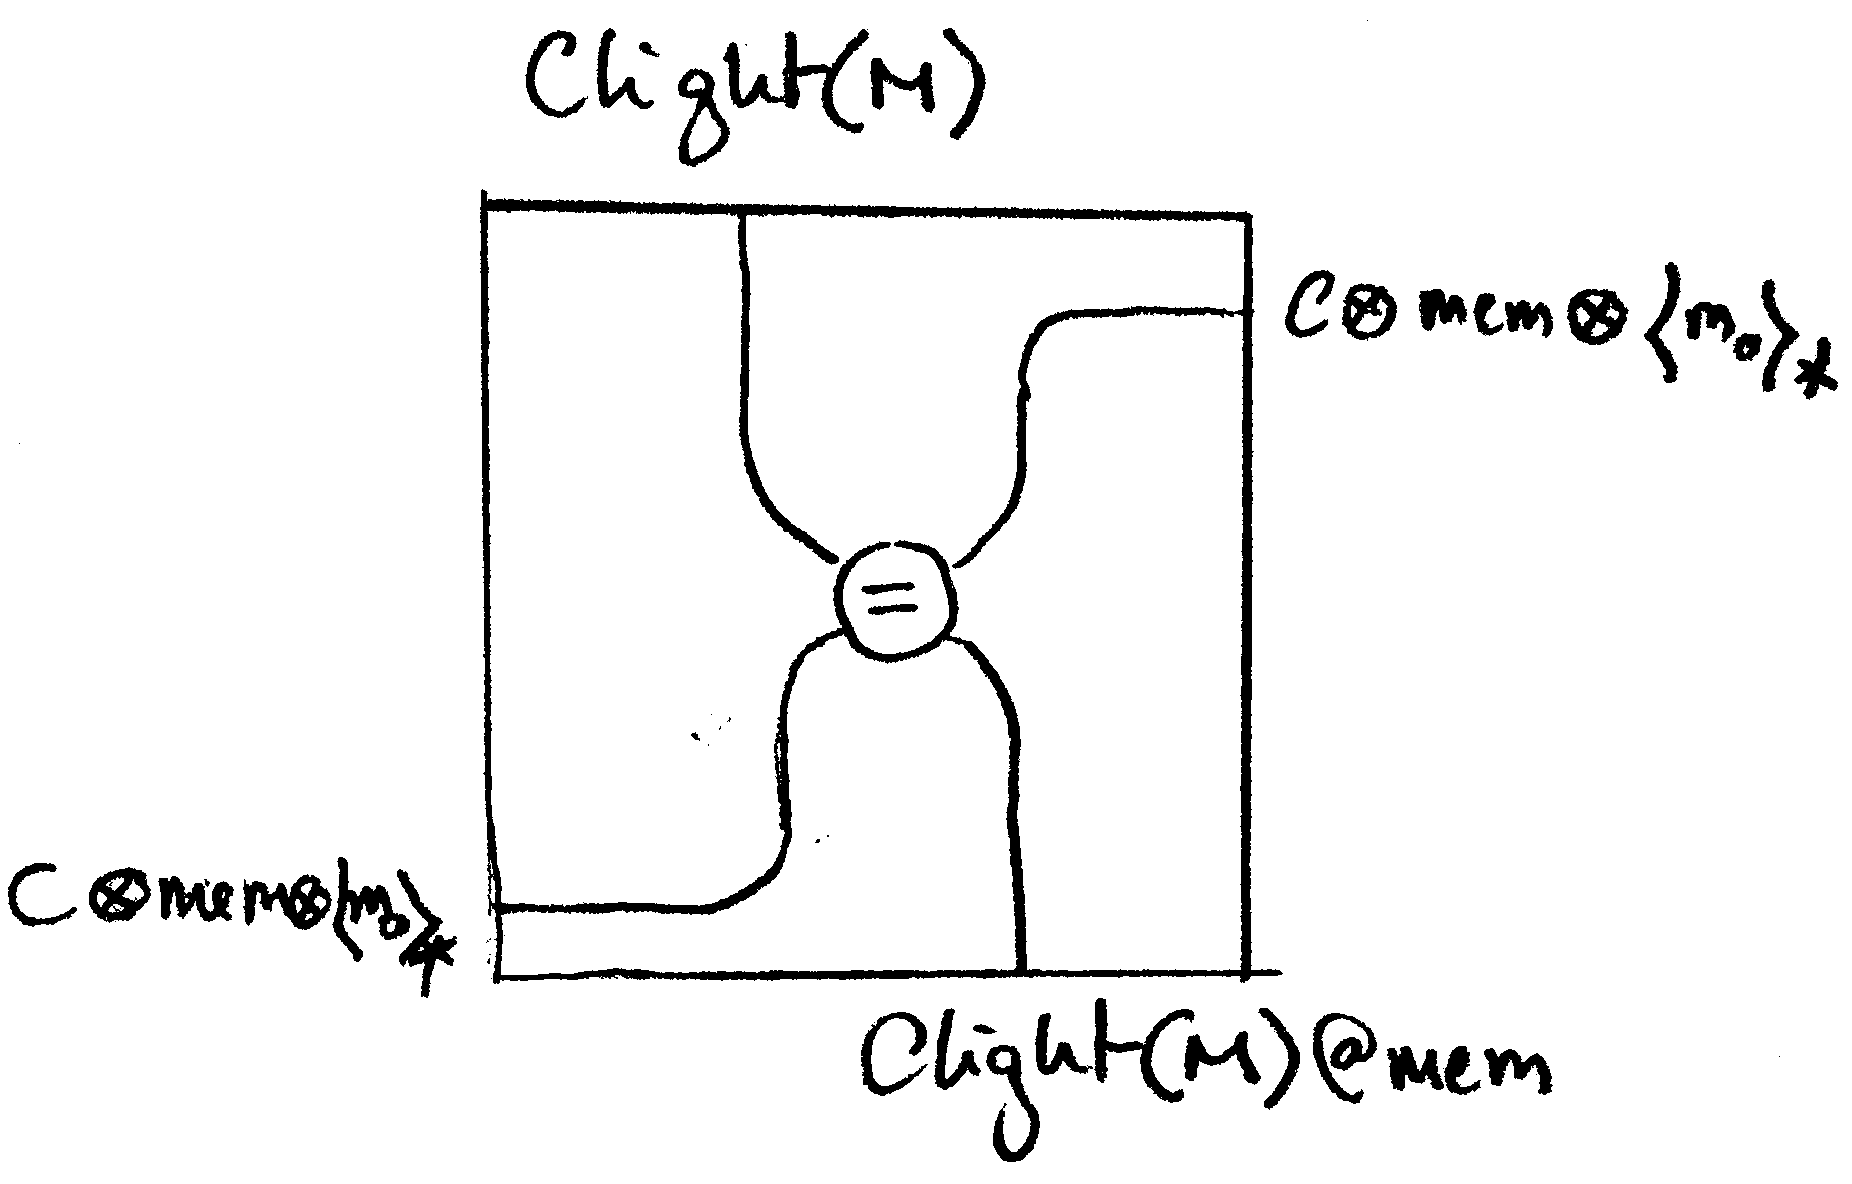 Clight(M)
C⊗mem⊗⟨m₀⟩*
=
C⊗mem⊗⟨m₀⟩*
Clight(M)@mem